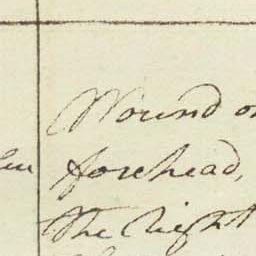 Wound on
forehead,
the right